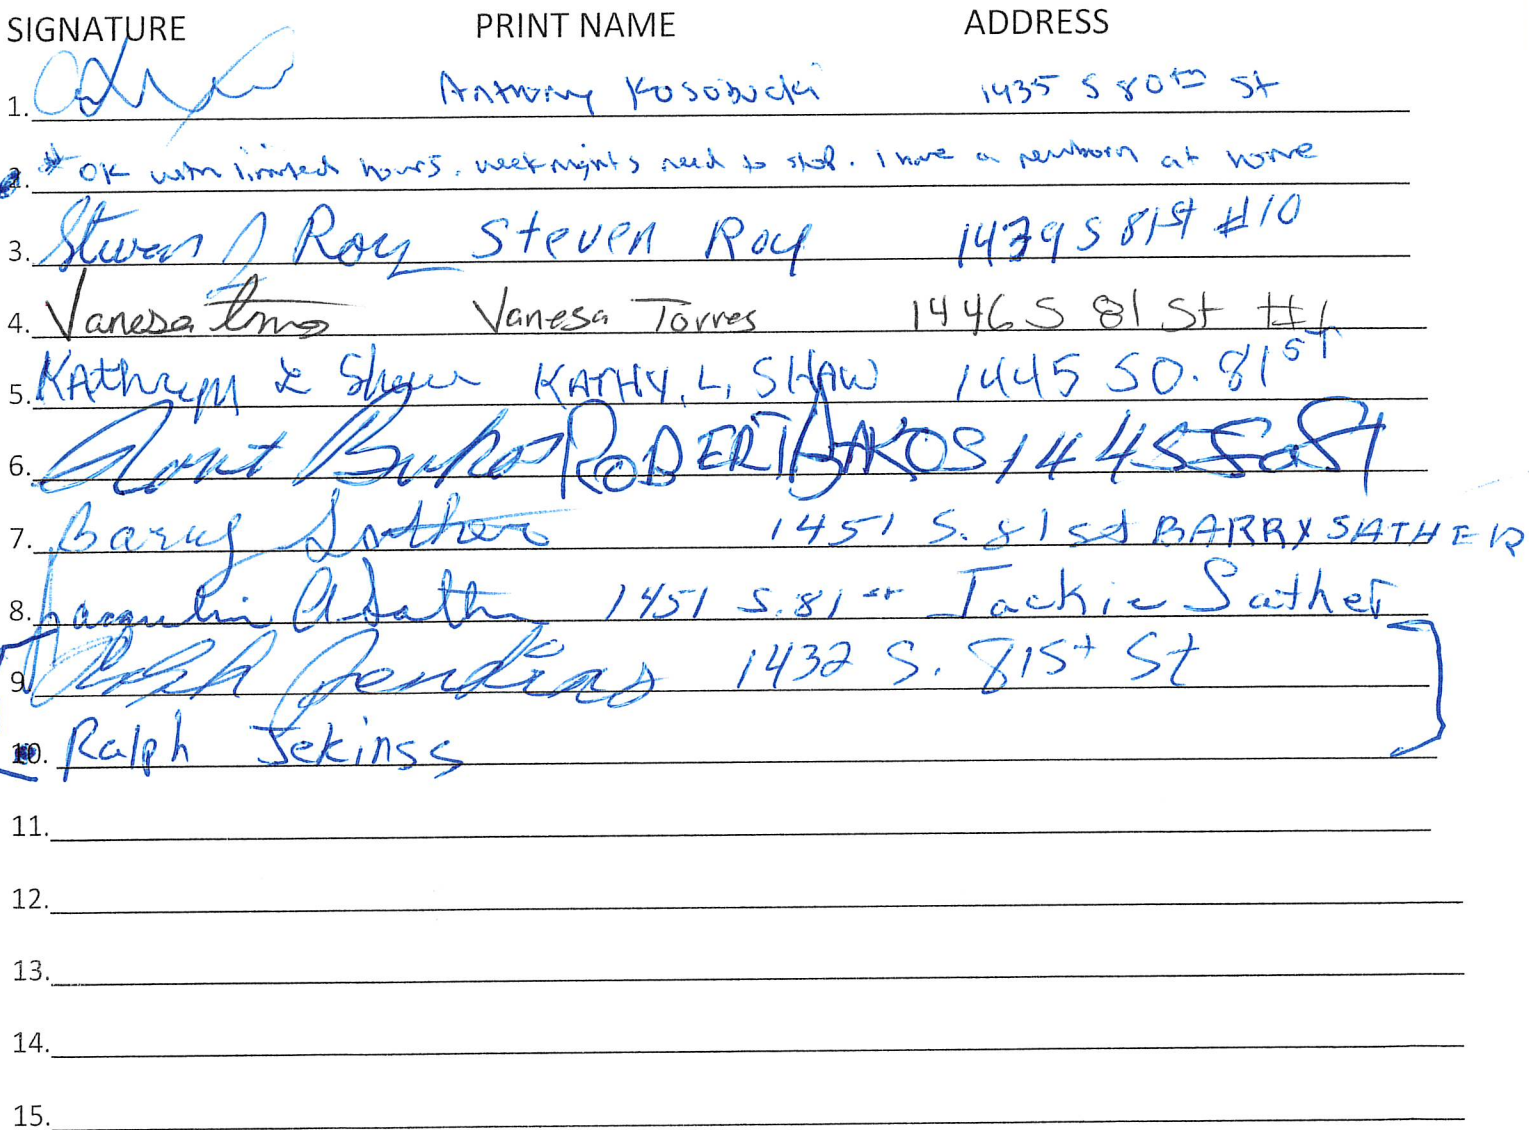 SIGNATURE PRINT NAME ADDRESS
1. Anthony Kosobucki 1435 S 80th St
2. * OK with limited hours. weeknights need to stop. I have a newborn at home
3. Steven J Roy Steven Roy 1439 S 81st #10
4. Vanesa Torres Vanesa Torres 1446 S 81 St #1
5. Kathryn L Shaw KATHY. L. SHAW 1445 SO. 81ST
6. Robert Bakos ROBERT BAKOS 1445 St
7. Barry Sather 1451 S. 81st BARRY SATHER
8. Jacquelin A Sather 1451 S. 81st Jackie Sather
9. Ralph Jenkins 1432 S. 81st St
10. Ralph Jekinss
11.
12.
13.
14.
15.